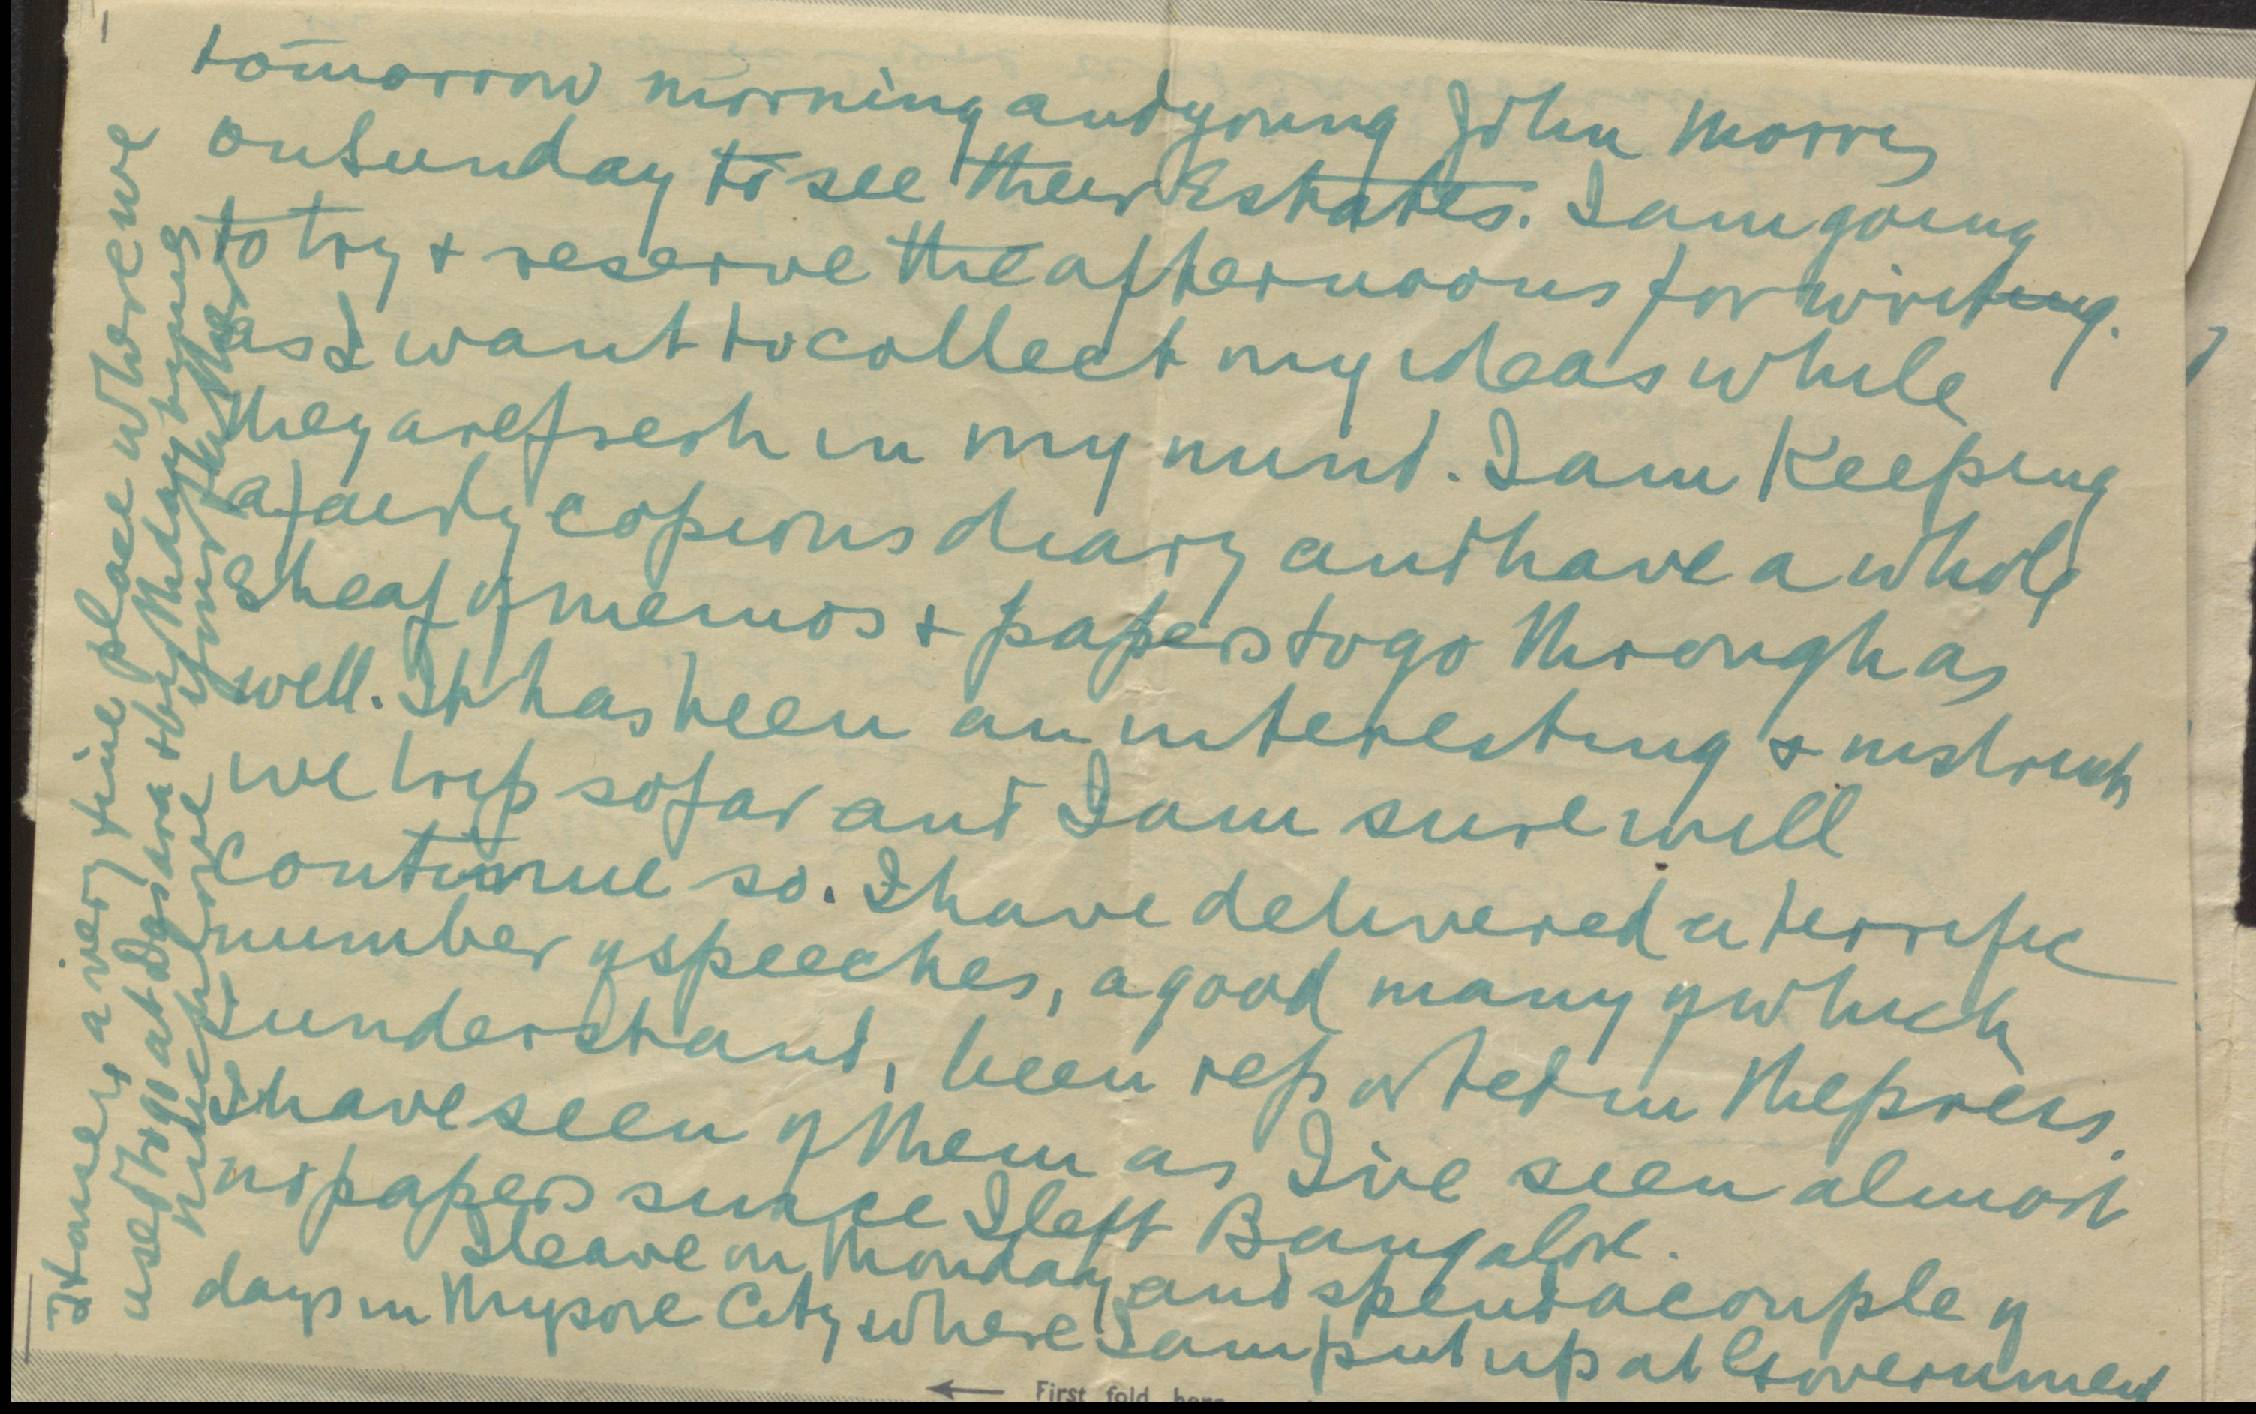 tomorrow morning and young John Morris
on Sunday to see their Estates. I am going
to try + reserve the afternoons for writing.
as I want to collect my ideas while
they are fresh in my mind. I am keeping
a fairly copious diary and have a whole
sheaf of memos + papers to go through as
well. It has been an interesting + instructi
ve trip so far and I am sure will
continue so. I have delivered a terrific
number of speeches, a good many of which
I understand, been reported in the press.
I have seen of them as I've seen almost
no papers since I left Bangalore.
I leave on Monday and spend a couple of
days in Mysore City where I am put up at Government
House, a very fine place where we
used to go at Dasara + by
much love
First fold here